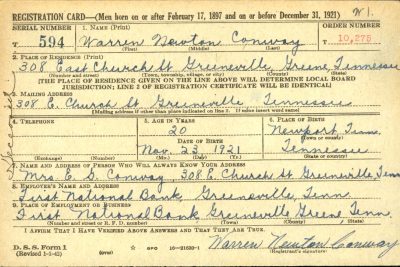 REGISTRATION CARD—(Men born on or after February 17, 1897 and on or before December 31, 1921) W1.
SERIAL NUMBER 1. NAME (Print) ORDER NUMBER
T 594 Warren Newton Conway 10,275
(First) (Middle) (Last)
2. PLACE OF RESIDENCE (Print)
308 East Church St Greeneville, Greene, Tennessee
(Number and street) (Town, township, village, or city) (County) (State)
[THE PLACE OF RESIDENCE GIVEN ON THE LINE ABOVE WILL DETERMINE LOCAL BOARD
JURISDICTION; LINE 2 OF REGISTRATION CERTIFICATE WILL BE IDENTICAL]
3. MAILING ADDRESS
308 E. Church St Greeneville, Tennessee
[Mailing address if other than place indicated on line 2. If same insert word same]
4. TELEPHONE 5. AGE IN YEARS 6. PLACE OF BIRTH
20 Newport, Tenn.
DATE OF BIRTH (Town or county)
Nov. 23 1921 Tennessee
(Exchange) (Number) (Mo.) (Day) (Yr.) (State or country)
7. NAME AND ADDRESS OF PERSON WHO WILL ALWAYS KNOW YOUR ADDRESS
Mrs. E. S. Conway, 308 E. Church St Greeneville, Tenn.
8. EMPLOYER'S NAME AND ADDRESS
First National Bank, Greeneville, Tenn.
9. PLACE OF EMPLOYMENT OR BUSINESS
First National Bank Greeneville Greene Tenn.
(Number and street or R. F. D. number) (Town) (County) (State)
I AFFIRM THAT I HAVE VERIFIED ABOVE ANSWERS AND THAT THEY ARE TRUE.
D. S. S. Form 1 GPO 16—21630-1 Warren Newton Conway
(Revised 1-1-42) (Registrant's signature)